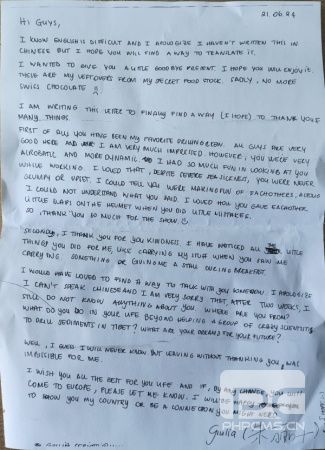 21.06.24
HI GUYS,
I KNOW ENGLISH IS DIFFICULT AND I APOLOGIZE I HAVEN'T WRITTEN THIS IN
CHINESE BUT I HOPE YOU WILL FIND A WAY TO TRANSLATE IT.
I WANTED TO GIVE YOU A LITTLE GOODBYE PRESENT. I HOPE YOU WILL ENJOY IT.
THESE ARE MY LEFTOVERS FROM MY SECRET FOOD STOCK. SADLY, NO MORE
SWISS CHOCOLATE
I AM WRITING THIS LETTER TO FINALLY FIND A WAY (I HOPE) TO THANK YOU
MANY THINGS.
FIRST OF ALL YOU HAVE BEEN MY FAVORITE DRILLING CREW. ALL GUYS ARE VERY
GOOD HERE AND I AM VERY MUCH IMPRESSED. HOWEVER, YOU WERE VERY
ACROBATIC AND MORE DYNAMIC. I HAD SO MUCH FUN IN LOOKING AT YOU
WHILE WORKING. I LOVED THAT, DESPITE SEVERE SICKNESS, YOU WERE NEVER
GRUMPY OR UPSET. I COULD TELL YOU WERE MAKING FUN OF EACHOTHERS, ALTHOUGH
I COULD NOT UNDERSTAND WHAT YOU SAID. I LOVED HOW YOU GAVE EACHOTHER
LITTLE SLAPS ON THE HELMET WHEN YOU DID LITTLE MISTAKES.
SO, THANK YOU SO MUCH FOR THE SHOW.
SECONDLY, I THANK YOU FOR YOU KINDNESS. I HAVE NOTICED ALL THE LITTLE
THINGS YOU DID FOR ME LIKE CARRYING MY STUFF WHEN YOU SAW ME
CARRYING SOMETHING OR GIVING ME A STILL DURING BREAKFAST.
I WOULD HAVE LOVED TO FIND A WAY TO TALK WITH YOU SOMEHOW. I APOLOGIZE
I CAN'T SPEAK CHINESE AND I AM VERY SORRY THAT, AFTER TWO WEEKS, I
STILL DO NOT KNOW ANYTHING ABOUT YOU. WHERE ARE YOU FROM?
WHAT DO YOU DO IN YOUR LIFE BEYOND HELPING A GROUP OF CRAZY SCIENTISTS
TO DRILL SEDIMENTS IN TIBET? WHAT ARE YOUR DREAMS FOR YOUR FUTURE?
WELL, I GUESS I WILL NEVER KNOW BUT LEAVING WITHOUT THANKING YOU WAS
IMPOSSIBLE FOR ME.
I WISH YOU ALL THE BEST FOR YOU LIFE AND IF, BY ANY CHANCE, YOU WILL
COME TO EUROPE, PLEASE LET ME KNOW. I WILL BE HAPPY
TO SHOW YOU MY COUNTRY OR BE A CONNECTION YOU MIGHT NEED.
Giulia
PHPCMS.CN